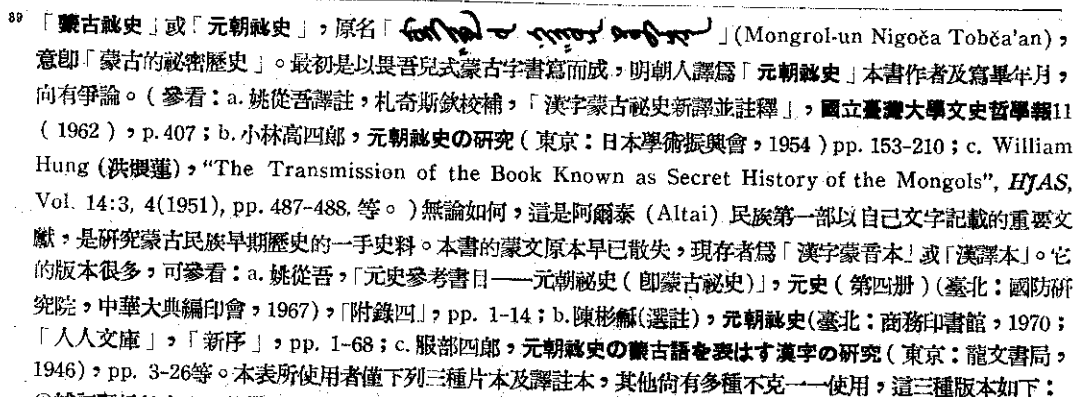 89 「蒙古祕史」或「元朝祕史」，原名「 」(Mongrol-un Nigoča Tobča'an)，
意卽「蒙古的祕密歷史」。最初是以畏吾兒式蒙古字書寫而成，明朝人譯爲「元朝祕史」本書作者及寫畢年月，
向有爭論。（參看：a. 姚從吾譯註，札奇斯欽校補，「漢字蒙古祕史新譯並註釋」，國立臺灣大學文史哲學報11
（1962），p. 407；b. 小林高四郎，元朝祕史の研究（東京：日本學術振興會，1954）pp. 153-210；c. William
Hung (洪煨蓮)，“The Transmission of the Book Known as Secret History of the Mongols”, HJAS,
Vol. 14:3, 4(1951), pp. 487-488, 等。）無論如何，這是阿爾泰 (Altai) 民族第一部以自己文字記載的重要文
獻，是研究蒙古民族早期歷史的一手史料。本書的蒙文原本早已散失，現存者爲「漢字蒙音本」或「漢譯本」。它
的版本很多，可參看：a. 姚從吾，「元史參考書目——元朝祕史（卽蒙古祕史）」，元史（第四册）(臺北：國防研
究院，中華大典編印會，1967)，「附錄四」，pp. 1-14；b. 陳彬龢(選註)，元朝祕史(臺北：商務印書館，1970；
「人人文庫」，「新序」，pp. 1-68；c. 服部四郎，元朝祕史の蒙古語を表はす漢字の研究（東京：龍文書局，
1946)，pp. 3-26等。本表所使用者僅下列三種片本及譯註本，其他尙有多種不克一一使用，這三種版本如下：